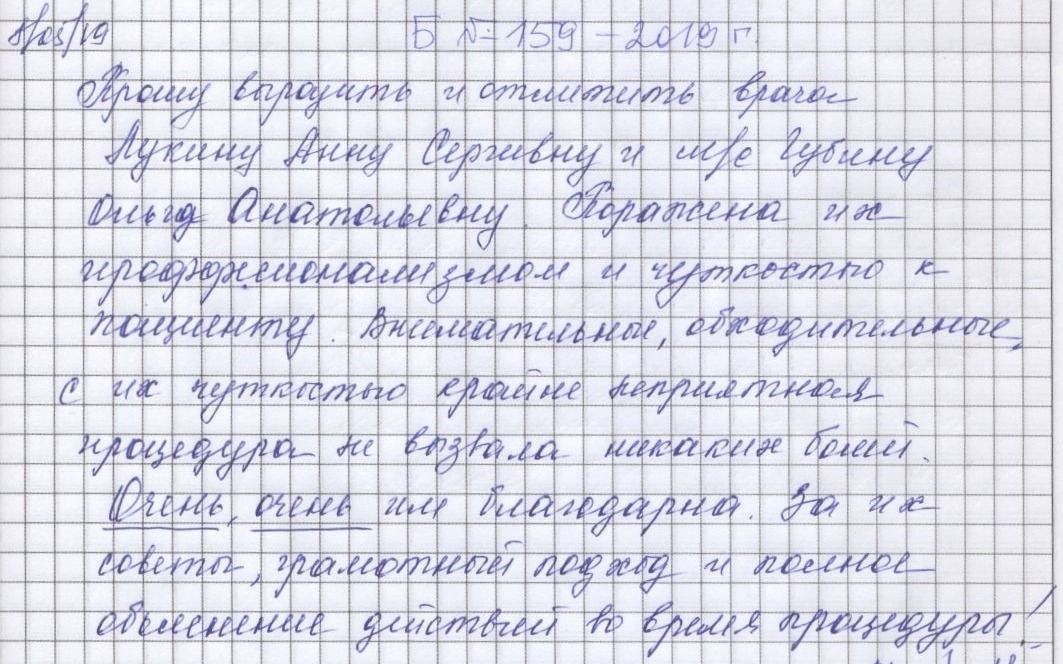 8/05/19 Б № 159 - 2019 г.
Прошу выразить и отметить врача
Лукину Анну Сергеевну и м/с Губину
Ольгу Анатольевну. Поражена их
профессионализмом и чуткостью к
пациенту. Внимательные, обходительные,
с их чуткостью крайне неприятная
процедура не вызвала никаких болей.
Очень, очень им благодарна. За их
советы, грамотный подход и полное
объяснение действий во время процедуры!